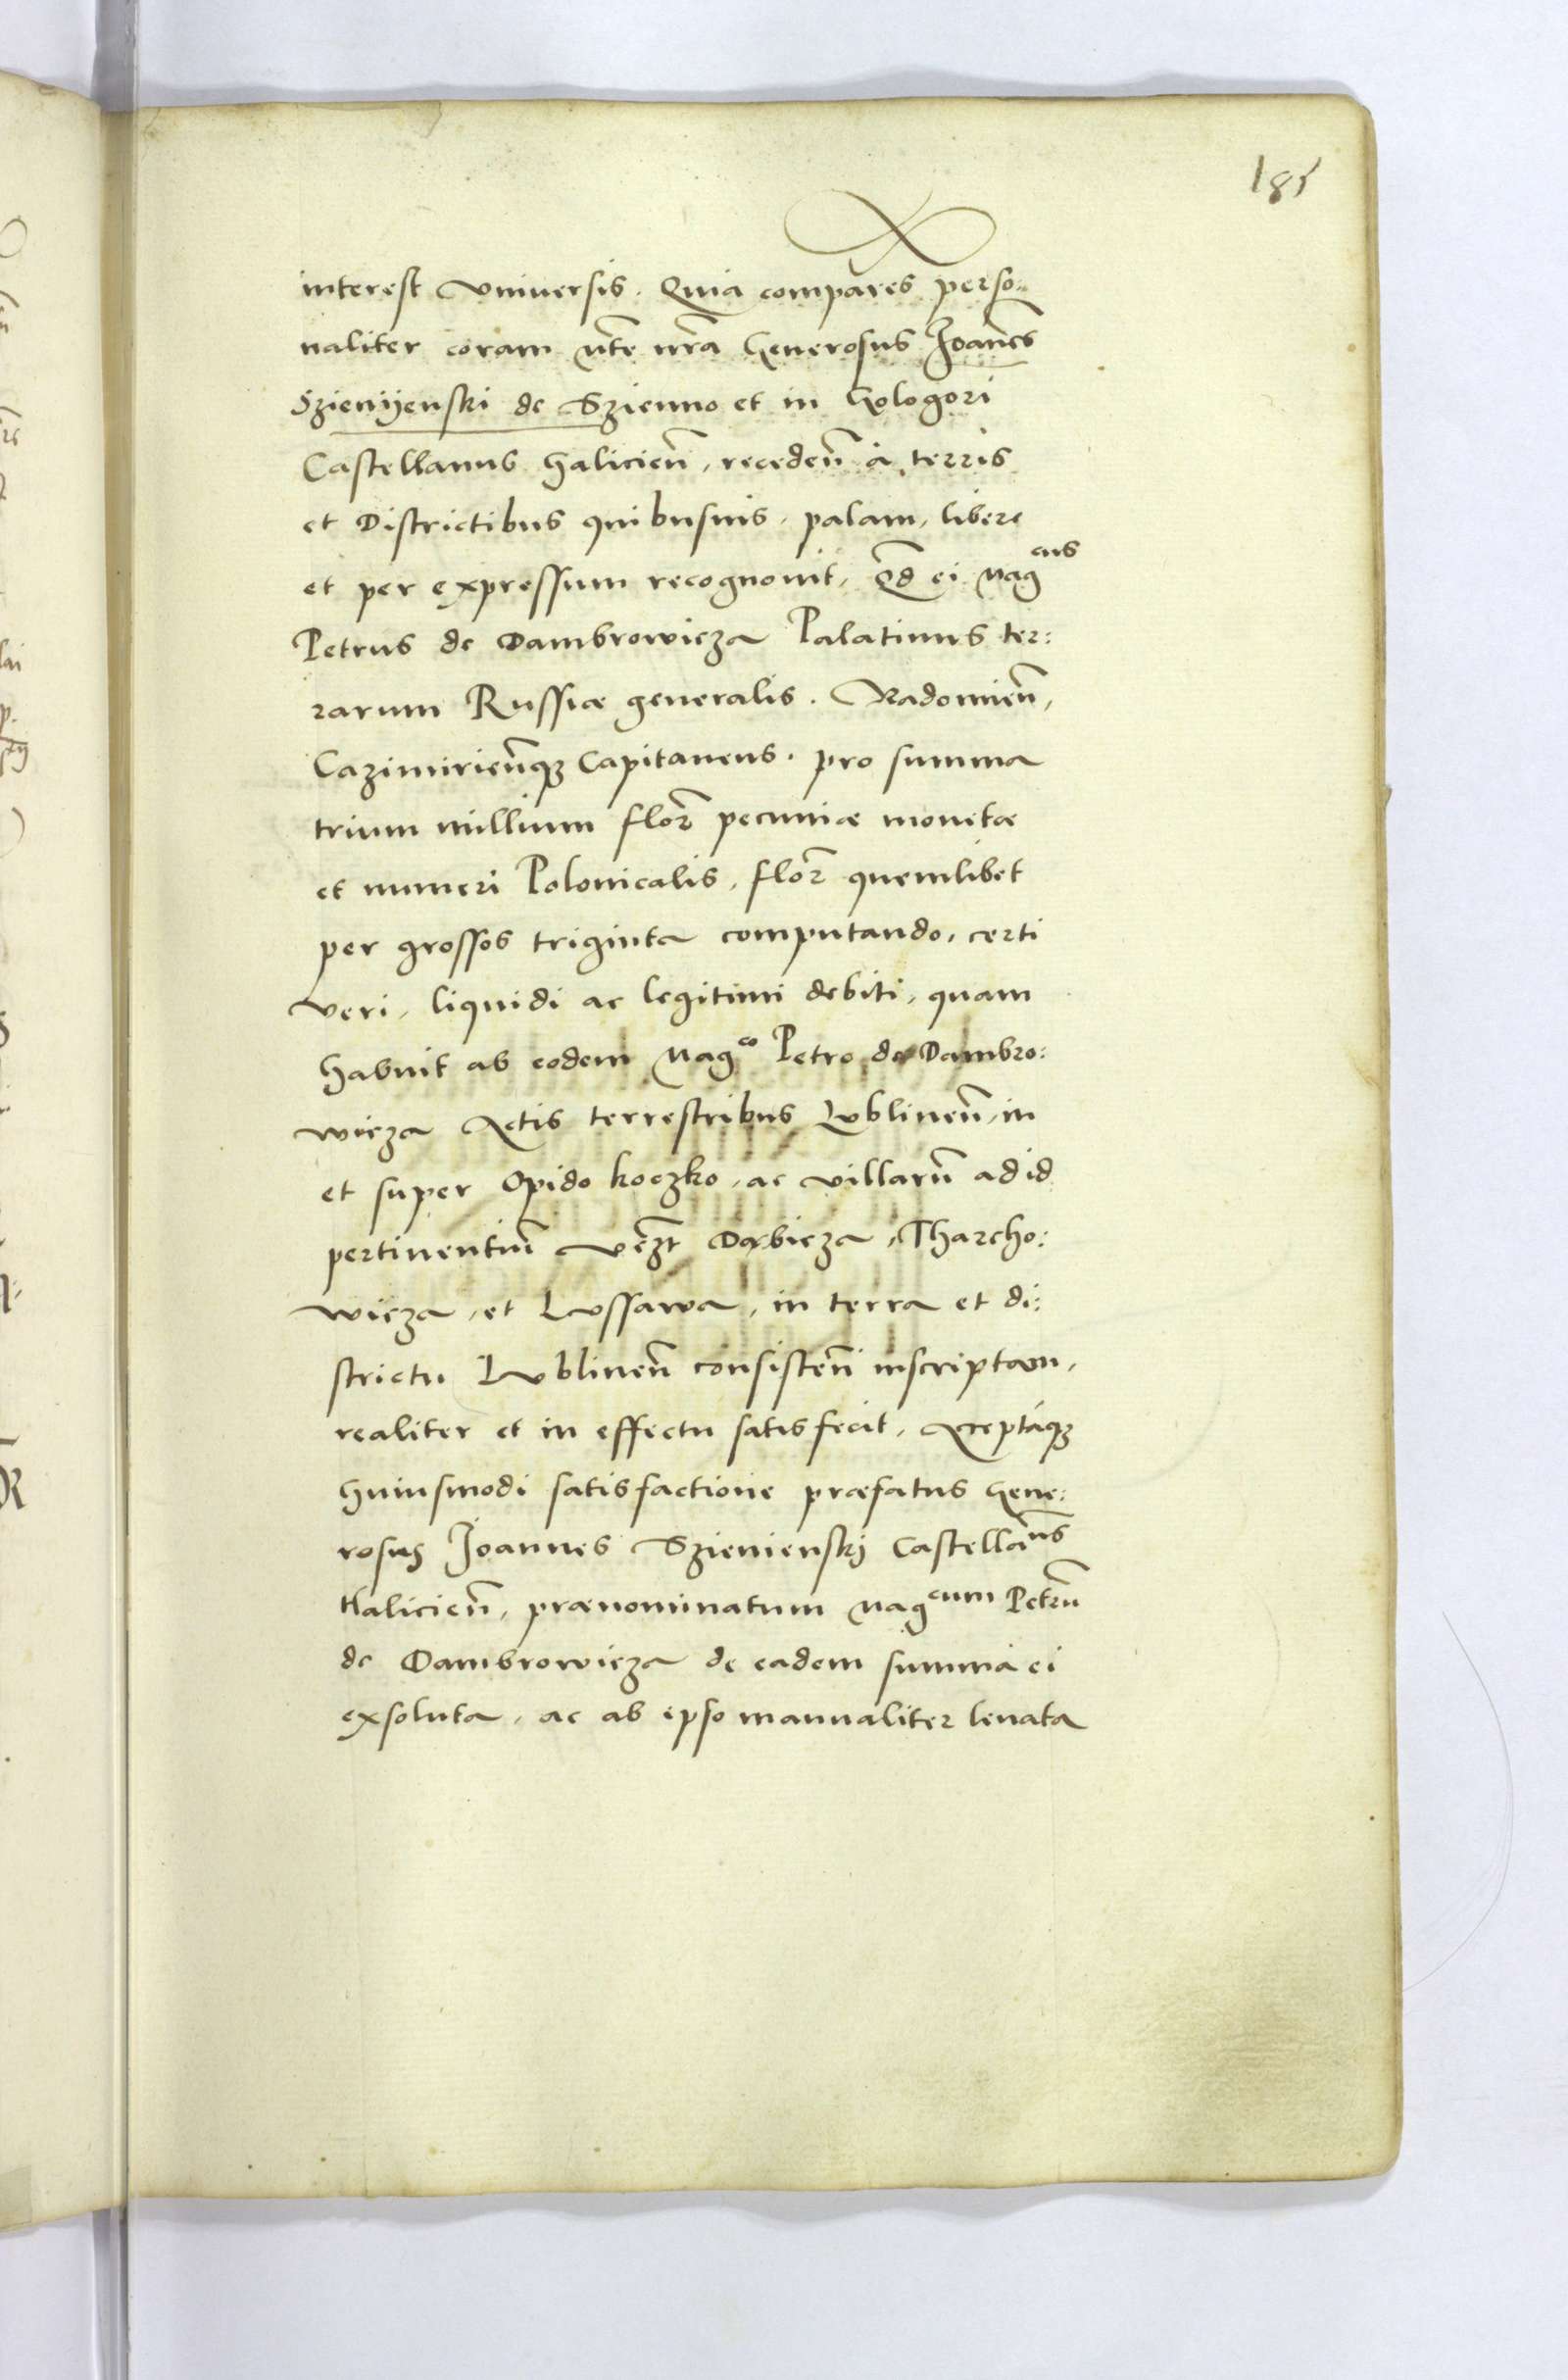 185
interest Vniuersis. Quia compares̄ perso:
naliter coram M̄te nr̄a Generosus Joan̄es
Szienÿenski de Szienno et in Gologori
Castellanus Halicien̄, receden̄ à terris
et Districtibus quibusuis, palam, libere
et per expressum recognouit, Qđ ei Mag^cus
Petrus de Dambrowicza Palatinus ter:
rarum Russiæ generalis. Radomien̄,
Cazimirien̄q3 Capitaneus. pro summa
trium millium flor̄ pecuniæ monetæ
et numeri Polonicalis, flor̄ quemlibet
per grossos triginta computando, certi
veri, liquidi ac legitimi debiti, quam
habuit ab eodem Mag^co Petro de Dambro:
wicza Actis terrestribus Lublinen̄, in
et super Opido Koczko, ac villarū ad id
pertinentiū vēzt Dąbicza, Tharcho:
wicza, et Lussawa, in terra et di:
strictu Lublinen̄ consisten̄ inscriptam,
realiter et in effectu satisfecit, Acceptáq3
huiusmodi satisfactione præfatus Gene:
rosus Joannes Szienienskj Castellan̄us
Halicien̄, prænominatum Mag^cum Petrū
de Dambrowicza de eadem summa ei
exsoluta, ac ab ipso manualiter leuata